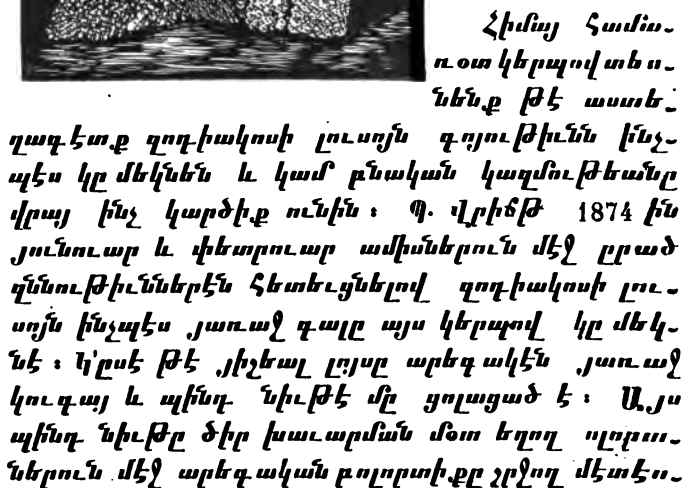 Հիմայ համա-
ռօտ կերպով տես-
նենք թէ աստե-
ղագէտք զոդիակոսի լուսոյն գոյութիւնն ինչ-
պէս կը մեկնեն և կամ բնական կազմութեանը
վրայ ինչ կարծիք ունին ։ Պ. Վրիճթ 1874 ին
յունուար և փետրուար ամիսներուն մէջ ըրած
զննութիւններէն հետեւցնելով զոդիակոսի լու-
սոյն ինչպէս յառաջ գալը այս կերպով կը մեկ-
նէ ։ Կ՚ըսէ թէ յիշեալ լոյսը արեգակէն յառաջ
կուգայ և պինդ նիւթէ մը ցոլացած է ։ Այս
պինդ նիւթը ծիր խաւարման մօտ եղող ոլորտ-
ներուն մէջ արեգական բոլորտիքը շրջող մէտէո-